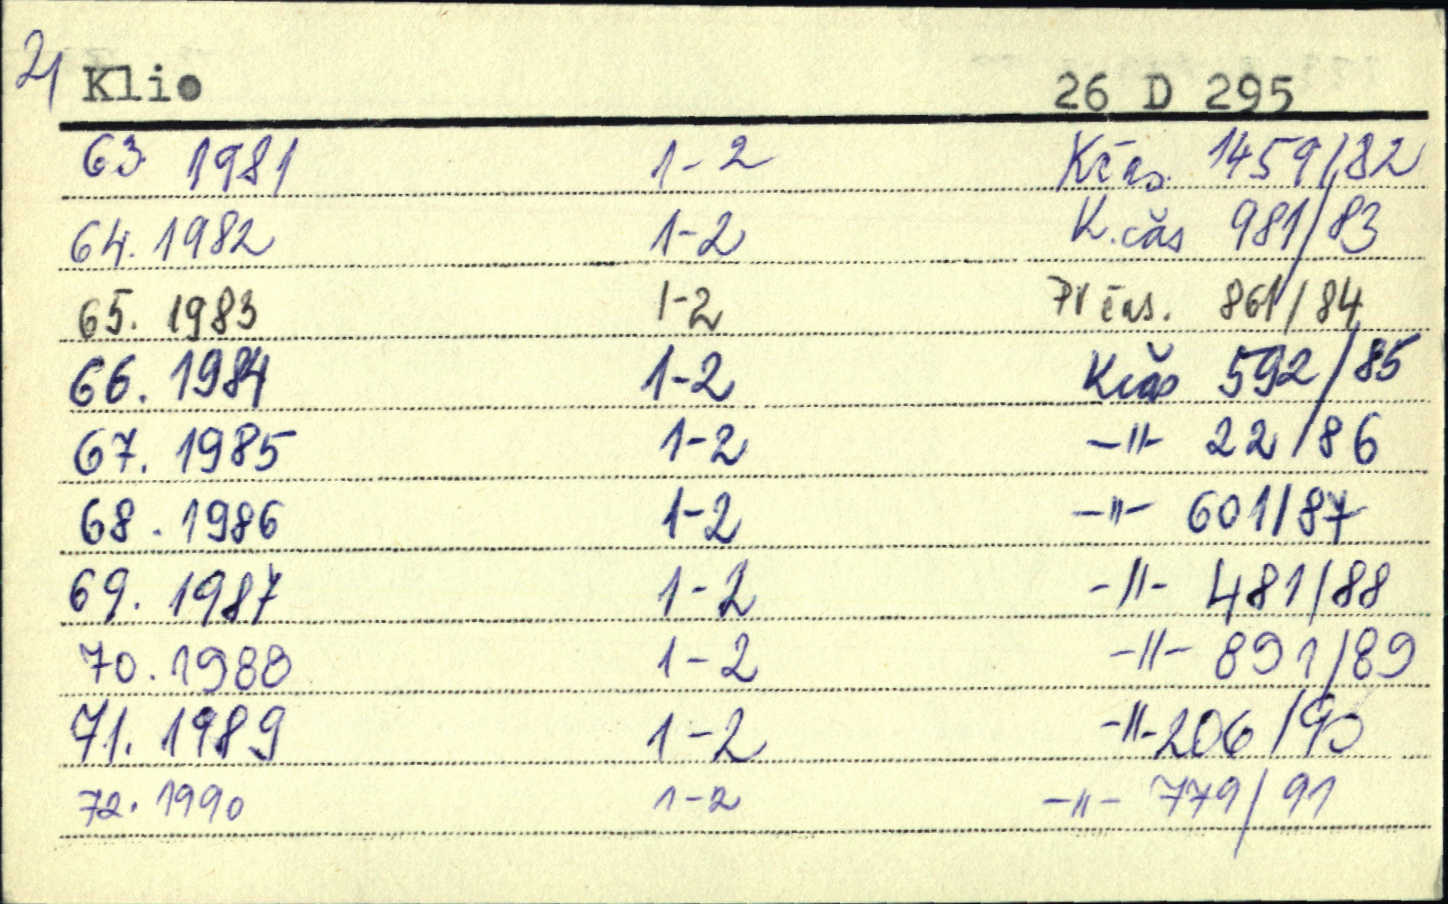 2/ Klio 26 D 295
63 1981 1-2 Kčas. 1459/82
64. 1982 1-2 K.čas 981/83
65. 1983 1-2 čas. 861/84
66. 1984 1-2 Kčas 592/85
67. 1985 1-2 -"- 22/86
68. 1986 1-2 -"- 601/87
69. 1987 1-2 -"- 481/88
70. 1988 1-2 -"- 891/89
71. 1989 1-2 -"- 206/90
72. 1990 1-2 -"- 779/91